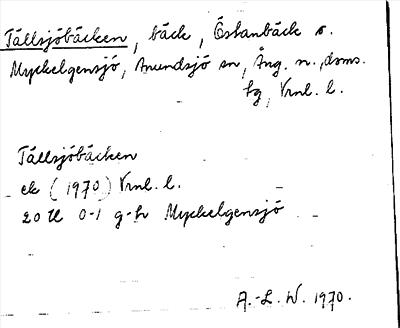 Tällsjöbäcken, bäck, Östanbäck o.
Myckelgensjö, Anundsjö sn, Ång. n., doms.
hg, Vrnl. l.
Tällsjöbäcken
ek (1970) Vrnl. l.
20 H 0-1 g-h Myckelgensjö
A.-L. W. 1970.